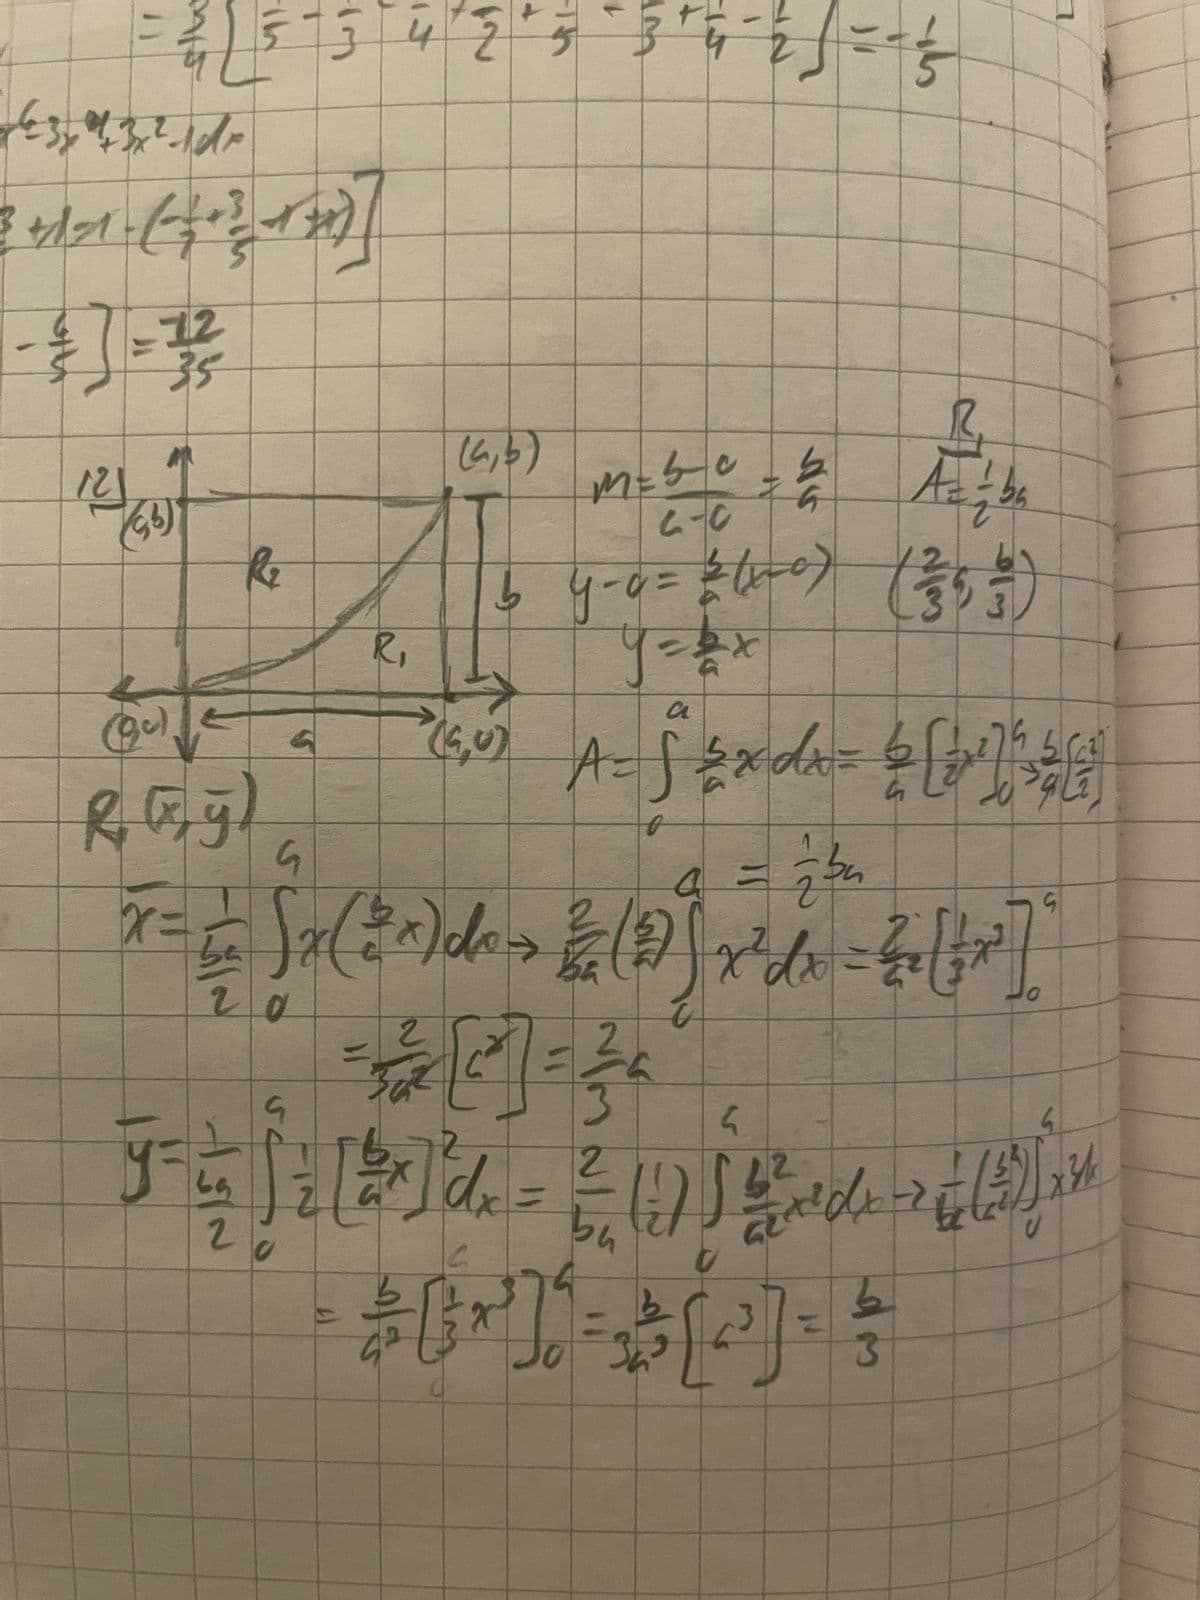 = 3/4 [ 1/5 - 1/3 - 1/4 + 1/2 + 1/5 - 1/3 + 1/4 - 1/2 ] = - 1/5
-3x⁴+3x²-1dx
+1-1-(-1/7+3/5-1+1)]
- 6/5 ] = -12/35
12]
(a,b)
R₂
R₁
b
a
(a,0)
m = b-0/a-0 = b/a
y-0 = b/a (x-0)
y = b/a x
R₁
A = 1/2 ba
(2/3 a, b/3)
A = ∫₀ᵃ b/a x dx = b/a [1/2 x²]₀ᵃ → b/a [a²/2]
= 1/2 ba
R₁ (x̄, ȳ)
x̄ = 1/(ba/2) ∫₀ᵃ x(b/a x)dx → 2/ba (b/a) ∫₀ᵃ x² dx = 2/a² [1/3 x³]₀ᵃ
= 2/3a² [a³] = 2/3 a
ȳ = 1/(ba/2) ∫₀ᵃ 1/2 [b/a x]² dx = 2/ba (1/2) ∫₀ᵃ b²/a² x² dx → 1/ba (b²/a²) ∫₀ᵃ x² dx
= b/a³ [1/3 x³]₀ᵃ = b/3a³ [a³] = b/3